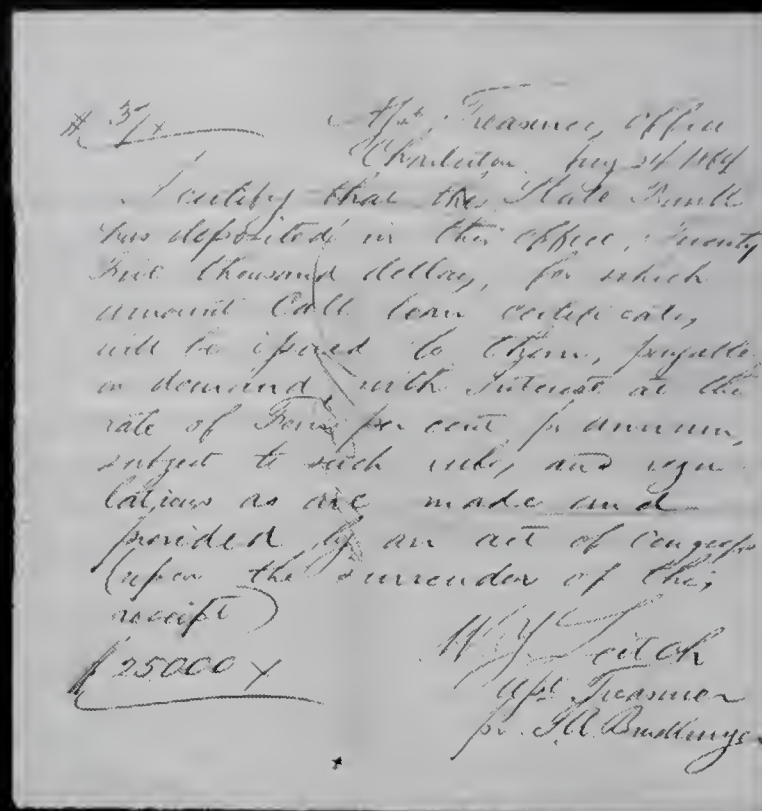 # 51 x Asst. Treasurer, Office
Charleston Aug 24 1864
I certify that the State Bank
has deposited in this office, Twenty
Five thousand dollars, for which
amount Call loan certificates,
will be issued to them, payable
on demand, with Interest at the
rate of Four per cent pr annum,
subject to such rules, and regu
lations as are made and
provided by an act of Congress
(upon the surrender of this,
receipt)
$25000 X W Y Leitch
Asst Treasurer
pr